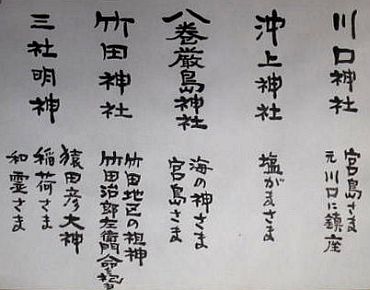 川口神社
宮島さま
元川口に鎮座
沖上神社
塩がまさま
八巻厳島神社
海の神さま
宮島さま
竹田神社
竹田地区の祖神
竹田治郎左衛門命を祀る
三社明神
猿田彦大神
稲荷さま
和霊さま